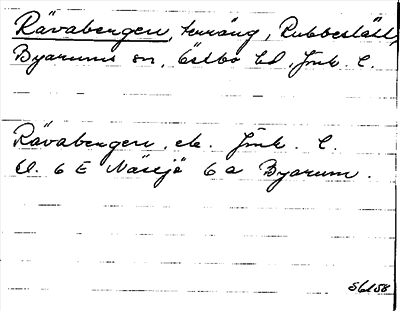 Rävabergen, terräng, Rubbeslätt,
Byarums sn, Östbo hd, Jönk. l.
Rävabergen, ek. Jönk. l.
Ö. 6 E Nässjö 6 a Byarum.
56158